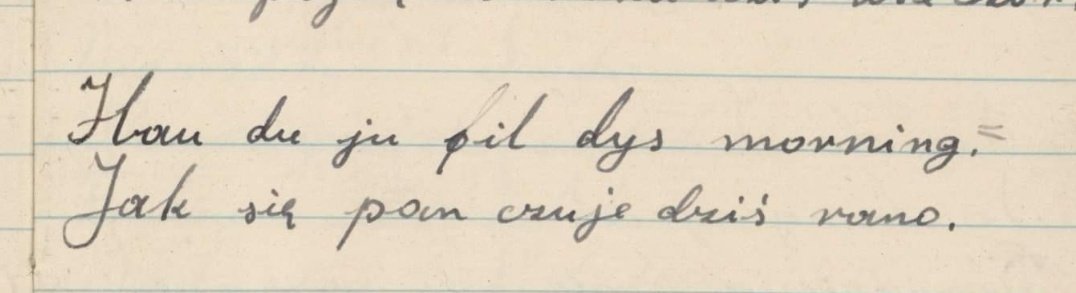 Hau du ju fil dys morning.=
Jak się pan czuje dziś rano.